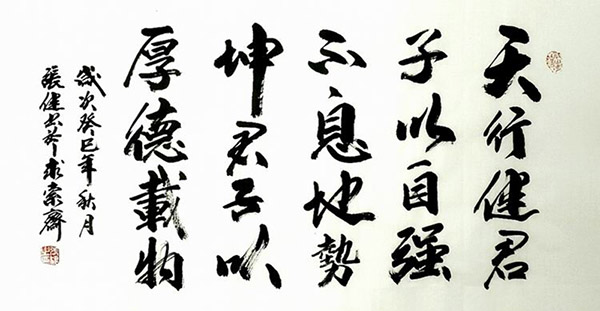 天行健君
子以自强
不息地勢
坤君子以
厚德載物
歲次癸巳年秋月
張健书於求索齋